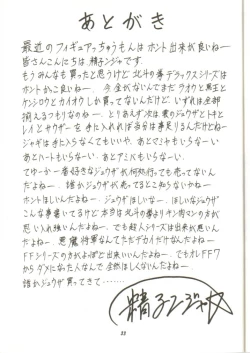 あとがき
最近のフィギュアっちゅうもんはホント出来が良いねー
皆さんこんにちは、精子ンジャです。
もうみんなも買ったと思うけど北斗の拳デラックスシリーズは
ホントかっこ良いねー。今全がないんでまだラオウと黒王と
ケンシロウとカイオウしか買ってないんだけど、いずれは全部
揃えるつもりなのねー。とりあえず次は雲のジュウザとトキと
レイとサウザーを手に入れれば当分は事足りるんだけどねー
ジャギは手に入らなくてもいいや、あとマミヤもいらなーい
あとハートもいらなーい。あとアミバもいらなーい。
てゆーか一番好きなジュウザが何処行っても売ってないん
だよねー。誰かジュウザが売ってるとこ知らないかねー
ホントほしいんだよねー。ジュウザほしいなー。ほしいなジュウザ
こんな事書いてるけど本当は北斗の拳よりキン肉マンの方が
思い入れ強いんだよねー。でも超人シリーズは出来が悪いん
だよねー 悪魔将軍なんてただデカイだけなんだよねー
FFシリーズの方がよっぽど出来いいんだよねー。でもオレFF7
からダメになった人なんで全然ほしくないんだよねー。
誰かジュウザ買ってきて……
精子ンジャ
33